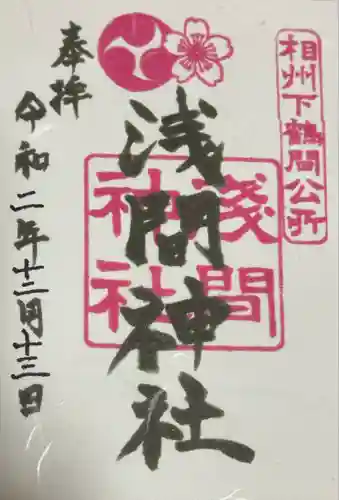 相州下鶴間公所
奉拝
浅間神社
淺間
神社
令和二年十二月十三日